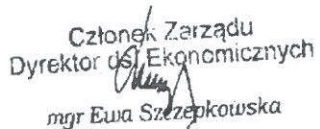 Członek Zarządu
Dyrektor ds. Ekonomicznych
mgr Ewa Szczepkowska